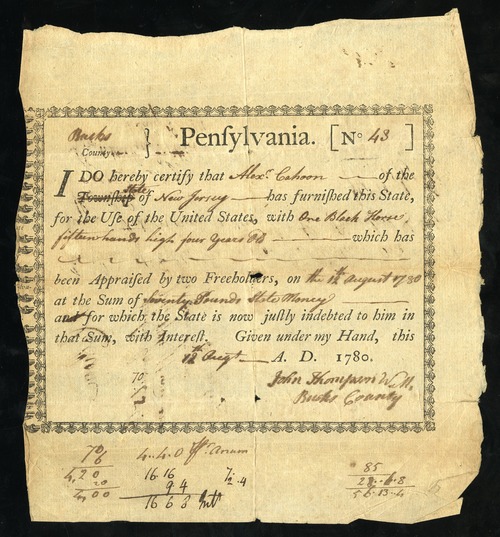 Bucks } Pensylvania. [No 43 ]
County
I DO hereby certify that Alexr. Cahoon of the
Township State of New Jersey has furnished this State,
for the Use of the United States, with One Black Horse,
fifteen hands high four Years Old which has
been Appraised by two Freeholders, on the 12th August 1780
at the Sum of Seventy Pounds State Money
and for which the State is now justly indebted to him in
that Sum, with Interest. Given under my Hand, this
12th Augt A. D. 1780.
70 John Thompson W.M.
Bucks County
70 4..4.0 Pr. Anum
6
4,20 16.16 7/2.4
20 9 4
4,00 16 6 8 Int
85
28..6.8
56.13.4